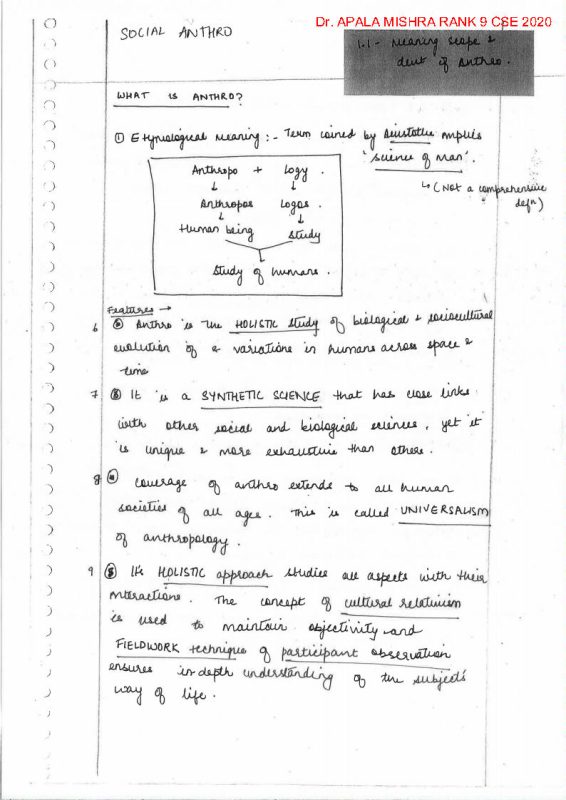 Dr. APALA MISHRA RANK 9 CSE 2020
SOCIAL ANTHRO
1.1 - Meaning scope &
devt of Anthro.
WHAT IS ANTHRO?
① Etymological Meaning :- Term coined by Aristotle implies
'science of Man'.
↳ (Not a comprehensive
defn)
Anthropo + Logy.
↓ ↓
Anthropos Logos.
↓ ↓
Human being Study
↓
Study of humans.
Features →
6 Anthro is the HOLISTIC study of biological & sociocultural
evolution of & variations in humans across space &
time
7 It is a SYNTHETIC SCIENCE that has close links
with other social and biological sciences, yet it
is unique & more exhaustive than others.
8 Coverage of anthro extends to all human
societies of all ages. This is called UNIVERSALISM
of anthropology.
9 Its HOLISTIC approach studies all aspects with their
interactions. The concept of cultural relativism
is used to maintain objectivity and
FIELDWORK technique of participant observation
ensures in-depth understanding of the subject's
way of life.